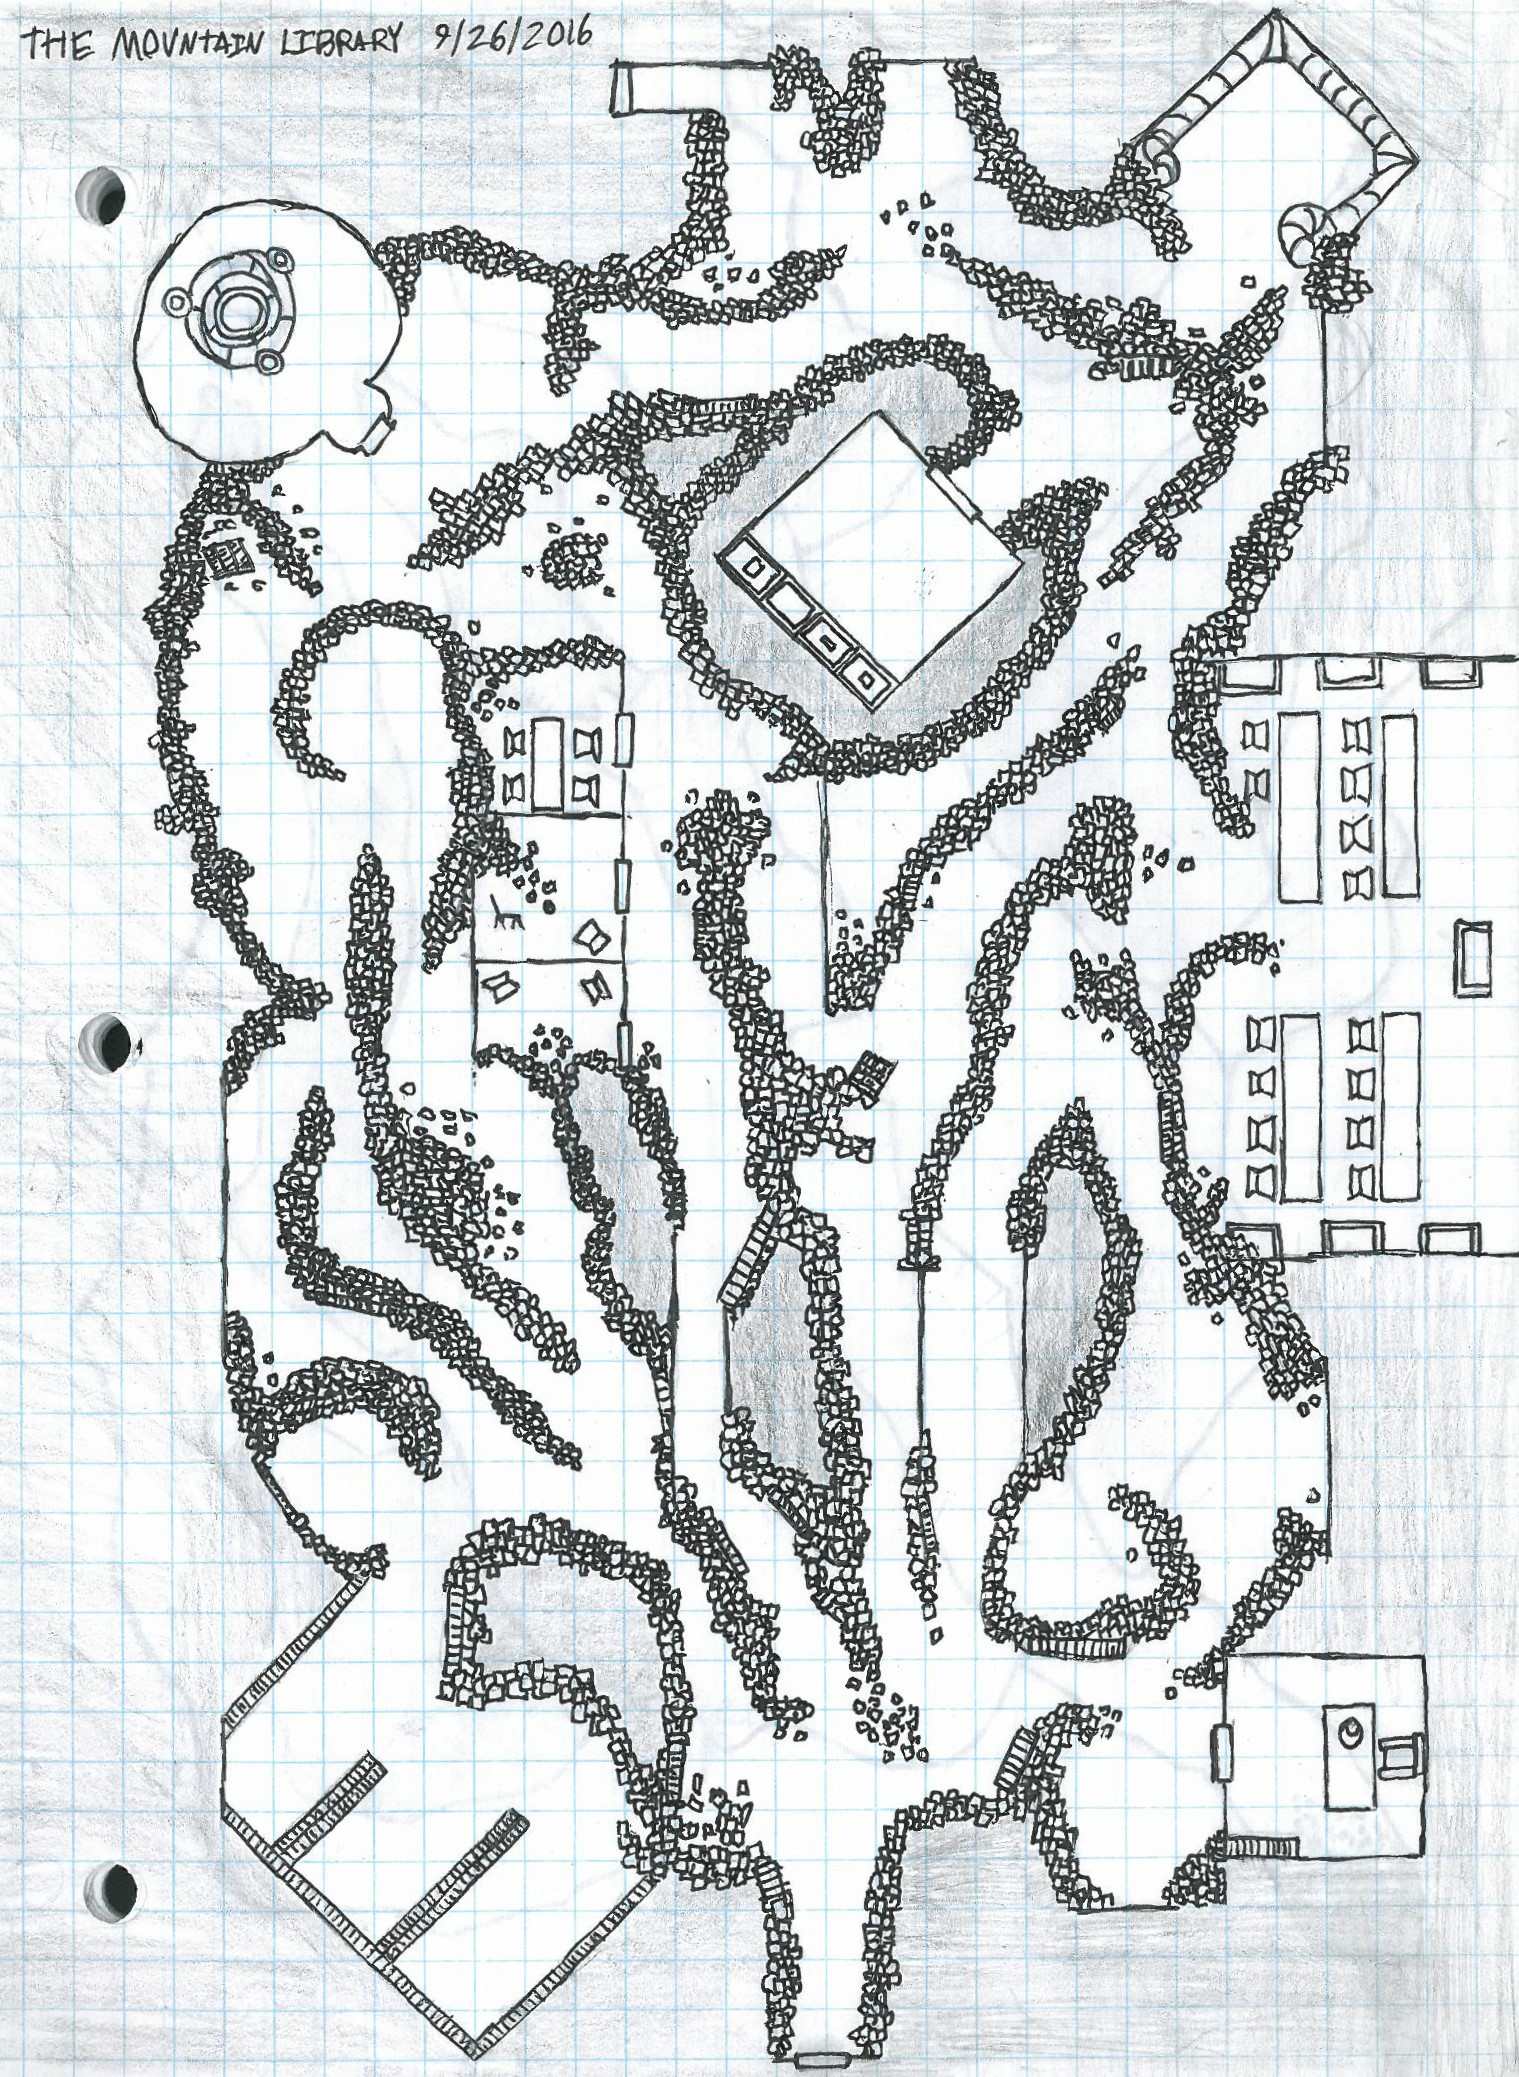 THE MOUNTAIN LIBRARY 9/26/2016